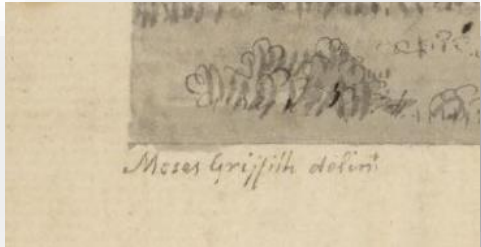 Moses Griffith delint.